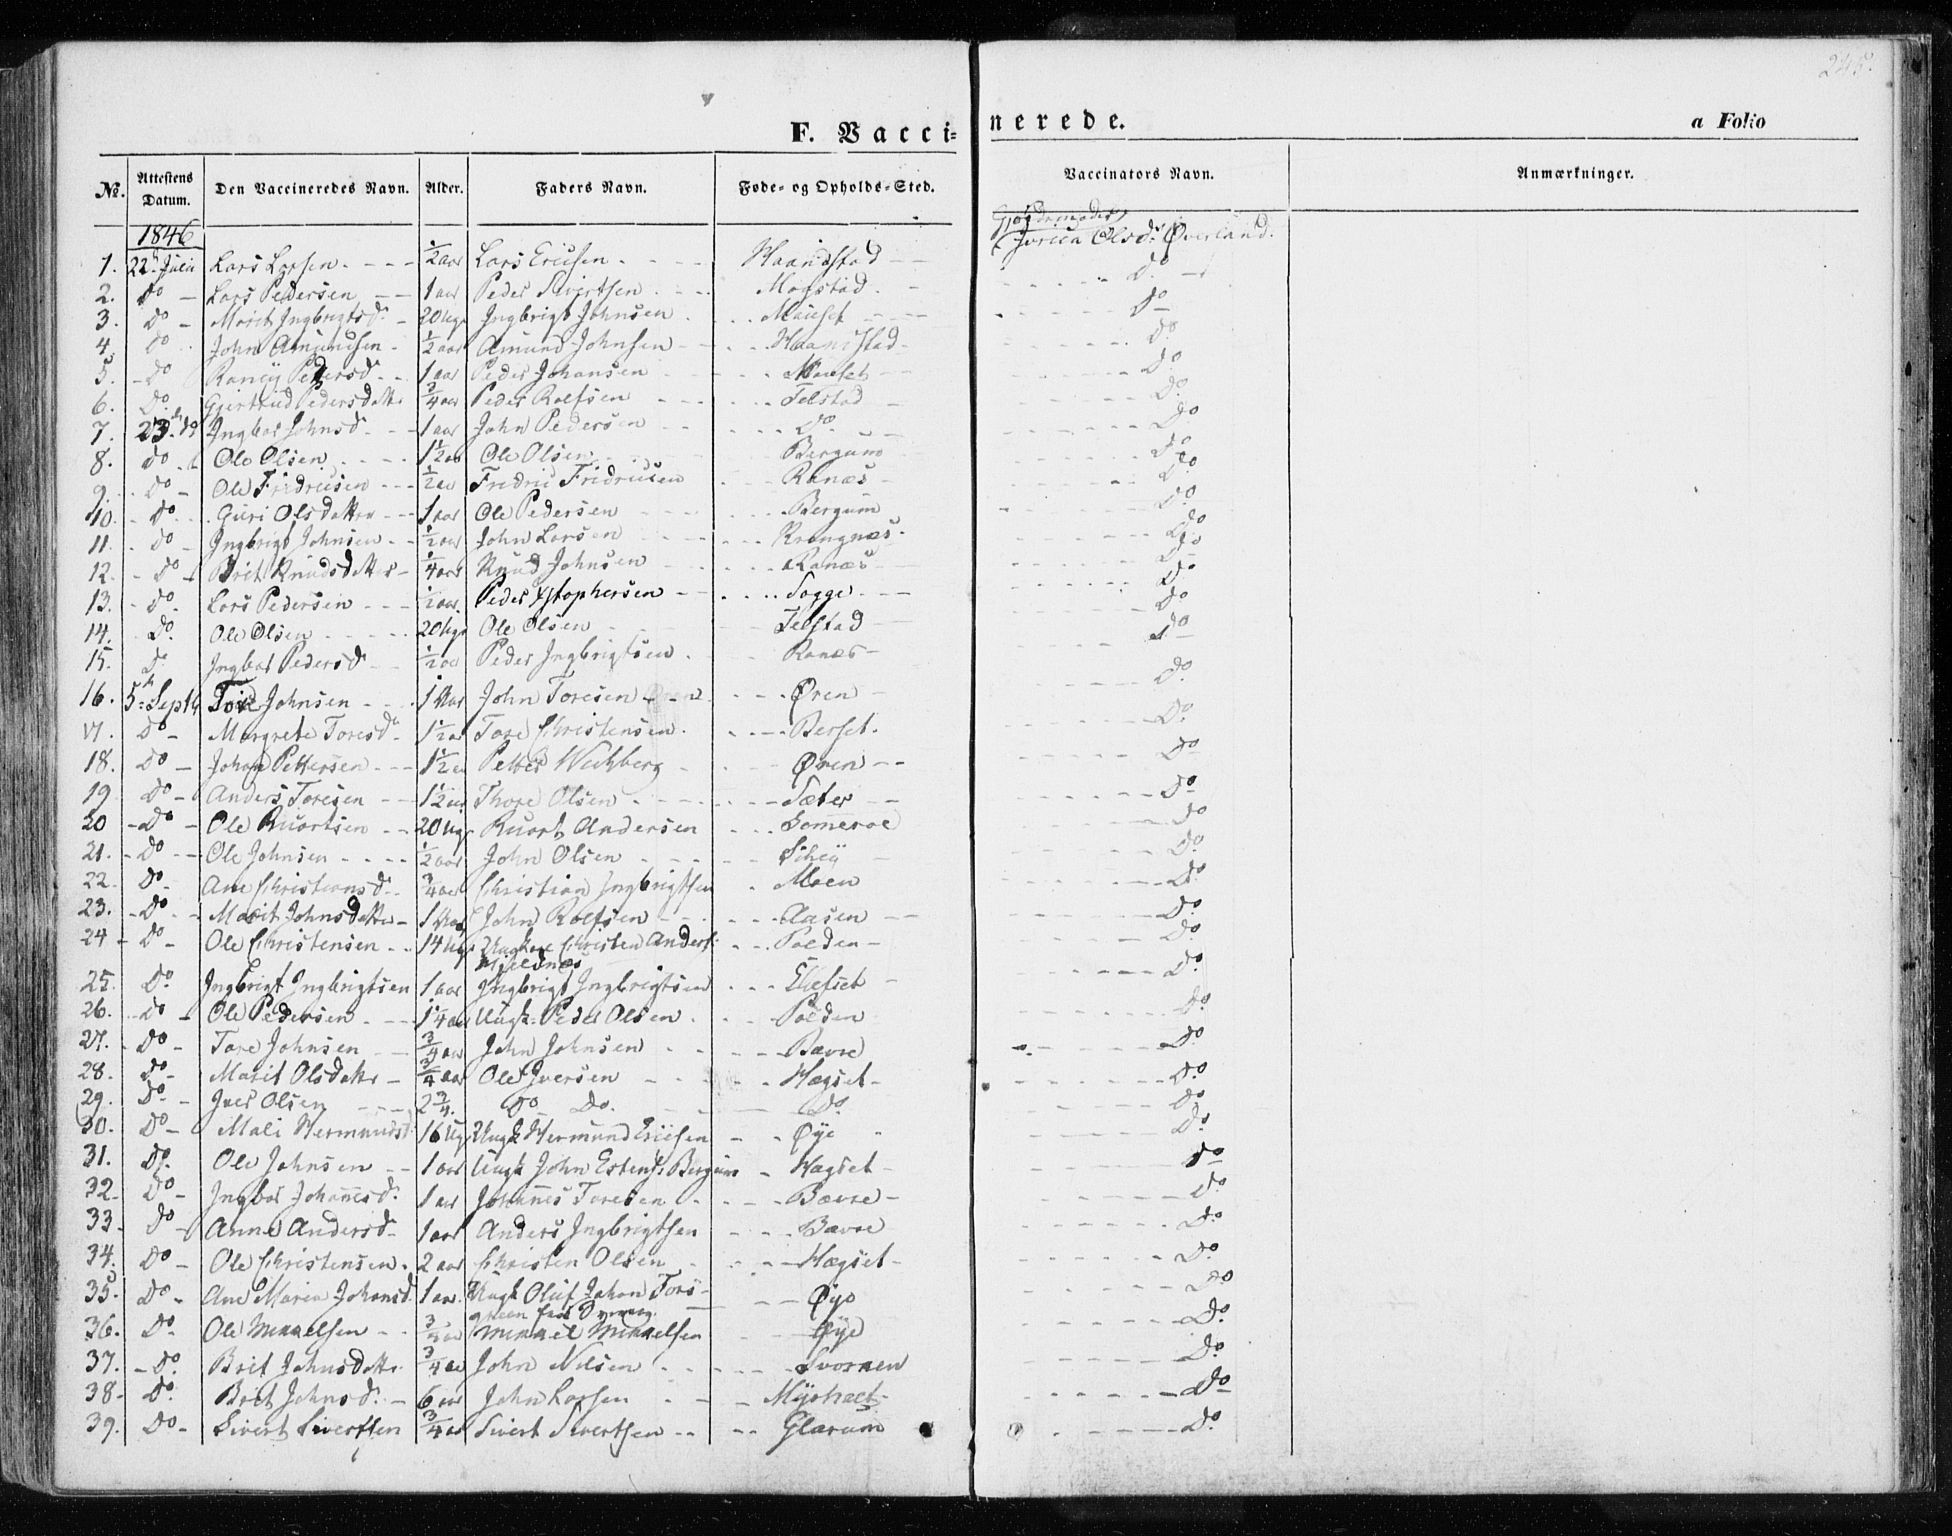 245.
F. Vacci=nerede.
a Folio
No. Attestens Datum. Den Vaccineredes Navn. Alder. Faders Navn. Føde- og Opholds-Sted. Vaccinators Navn. Anmærkninger.
1846 Gjordemoder
1. 22. Julii Lars Larsen 1/2 aar Lars Ericsen Haandstad Olsdr Øverland.
2. Do Lars Pedersen 1 aar Peder Sivertsen Mogstad Do
3. Do Marit Ingbrigtsd. 20 Ugr Ingbrigt Johnsen Mauset Do
4. Do John Amundsen 1/2 aar Amund Johnsen Haandstad Do
5. Do Petersd. 1 aar Peder Johansen Mauset Do
6. Do. Gjertrud Pedersdatter 3/4 aar Peder Rolfsen Telstad Do
7. 23. Ingbor Johnsd. 1 aar John Pedersen Do Do
8. Do Ole Olsen 1 1/2 aar Ole Olsen Bergum Do
9. Do Ole Fridricsen 1/2 aar Fridric Fridricsen Ranæs Do
10. Do Guri Olsdatter 1 aar Ole Pedersen Bergum Do
11. Do Ingbrigt Johnsen 1/2 aar John Larsen Krangnæs Do
12. Do Brit Knudsdatter 1/4 aar Knud Johnsen Ranæs Do
13. Do Lars Pedersen 1/2 aar Peder Xstophersen Togge Do
14. Do Ole Olsen 20 Ugr Ole Olsen Telstad Do
15. Do Ingbor Pedersd. 1/2 aar Peder Ingbrigtsen Ranæs Do
16. 5. Septb Tore Johnsen 1 Aar John Toresen Øren Do
17. Do Margrete Toresd. 1 1/2 aar Tore Christensen Berset. Do
18. Do Johan Pettersen 1 1/2 aar Petter Wichberg Øren Do
19 Do Anders Toresen 1 1/2 aar Thore Olsen Sæter Do
20 Do Ole Ruartsen 20 Ugr Ruart Andersen Do
21. Do Ole Johnsen 1/2 aar John Olsen Do
22. Do Ane Christiansd. 3/4 aar Christian Ingbrigtsen Moen Do
23. Do Marit Johnsdatter 1 Aar John Rolfsen Aasen Do
24 Do Ole Christensen 14 Ugr Ungkar Christen Anders. Polden Do
25. Do Ingbrigt Ingbrigtsen 1 aar Ingbrigt Ingbrigtsen Do
26. Do Ole Pedersen 1 1/4 aar Ungk: Peder Olsen Polden Do
27. Do Tore Johnsen 3/4 aar John Johnsen Bævre Do
28. Do Marit Olsdatter 3/4 aar Ole Iversen Hægset Do
29. Do Iver Olsen 2 3/4. Do Do. Do. Do
30. Do Mali Hermundsd. 16 Ugr Ungk Hermund Ericsen Øye Do
31. Do Ole Johnsen 1 aar Ungk John Estens. Bergum Hægset Do
32. Do Ingbor Johanesd. 1 aar Johannes Toresen Bævre Do
33. Do Anne Andersd. 1 aar Anders Ingbrigtsen Bævre Do
34. Do Ole Christensen 2 aar Christen Olsen Hægset Do
35. Do Ane Maria Johansd. 1 aar. Ungk Oluf Johan Fors- Øye Do
green fra
36. Do Ole Mikkelsen 3/4 aar Mikkel Mikkelsen Øye Do.
37. Do. Brit Johnsdatter 3/4 aar John Nilsen Svornen Do
38. Do Brit Johnsd. 6 aar John Larsen Do
39. Do Sivert Sivertsen 3/4 aar Sivert Sivertsen Glærum Do.